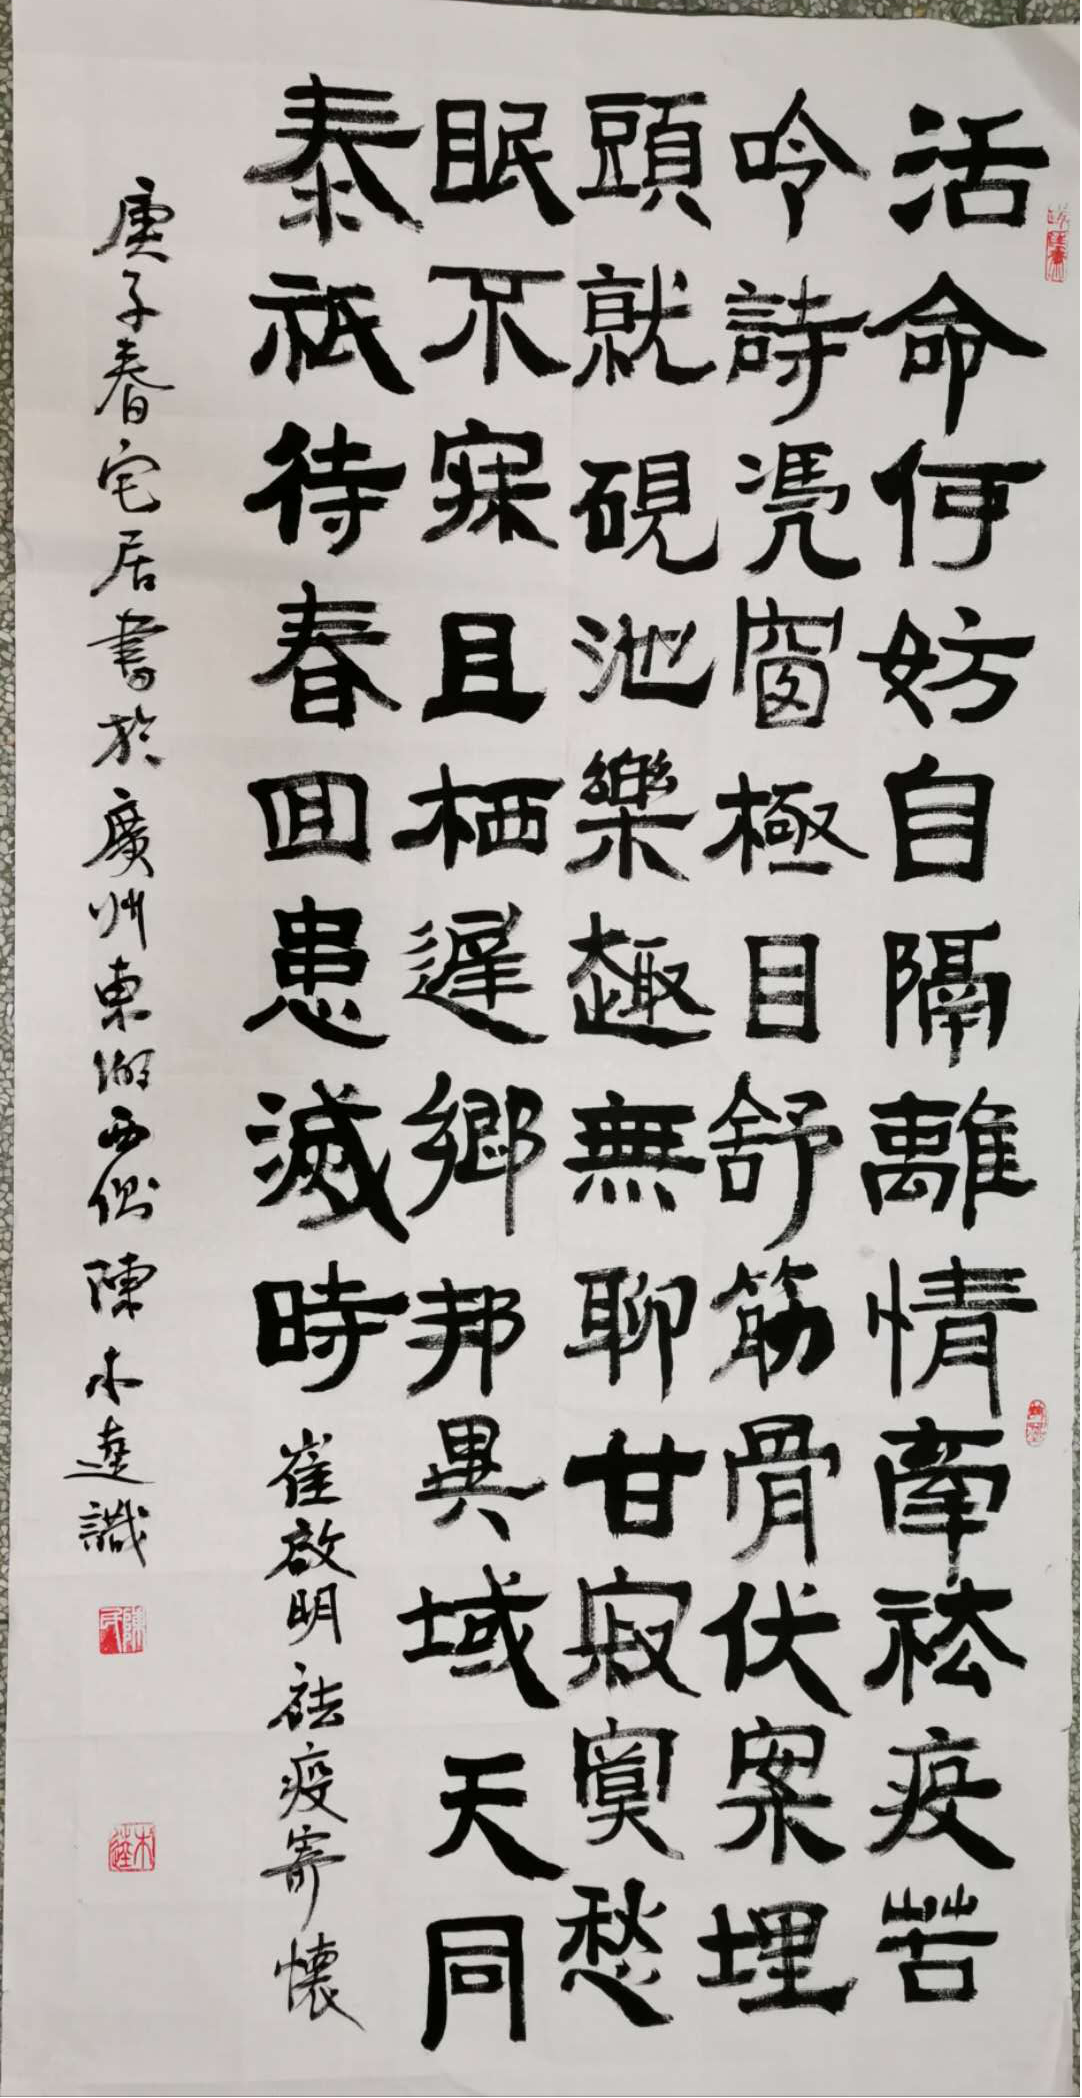 活命何妨自隔離情牽祛疫苦
吟詩憑窗極目舒筋骨伏案埋
頭就硯池樂趣無聊甘寂寞愁
眠不寐且栖遲鄉邦異域天同
泰祇待春回患滅時
崔啟明祛疫寄懷
庚子春宅居書於廣州東湖西側陳木達識
陳氏
木達